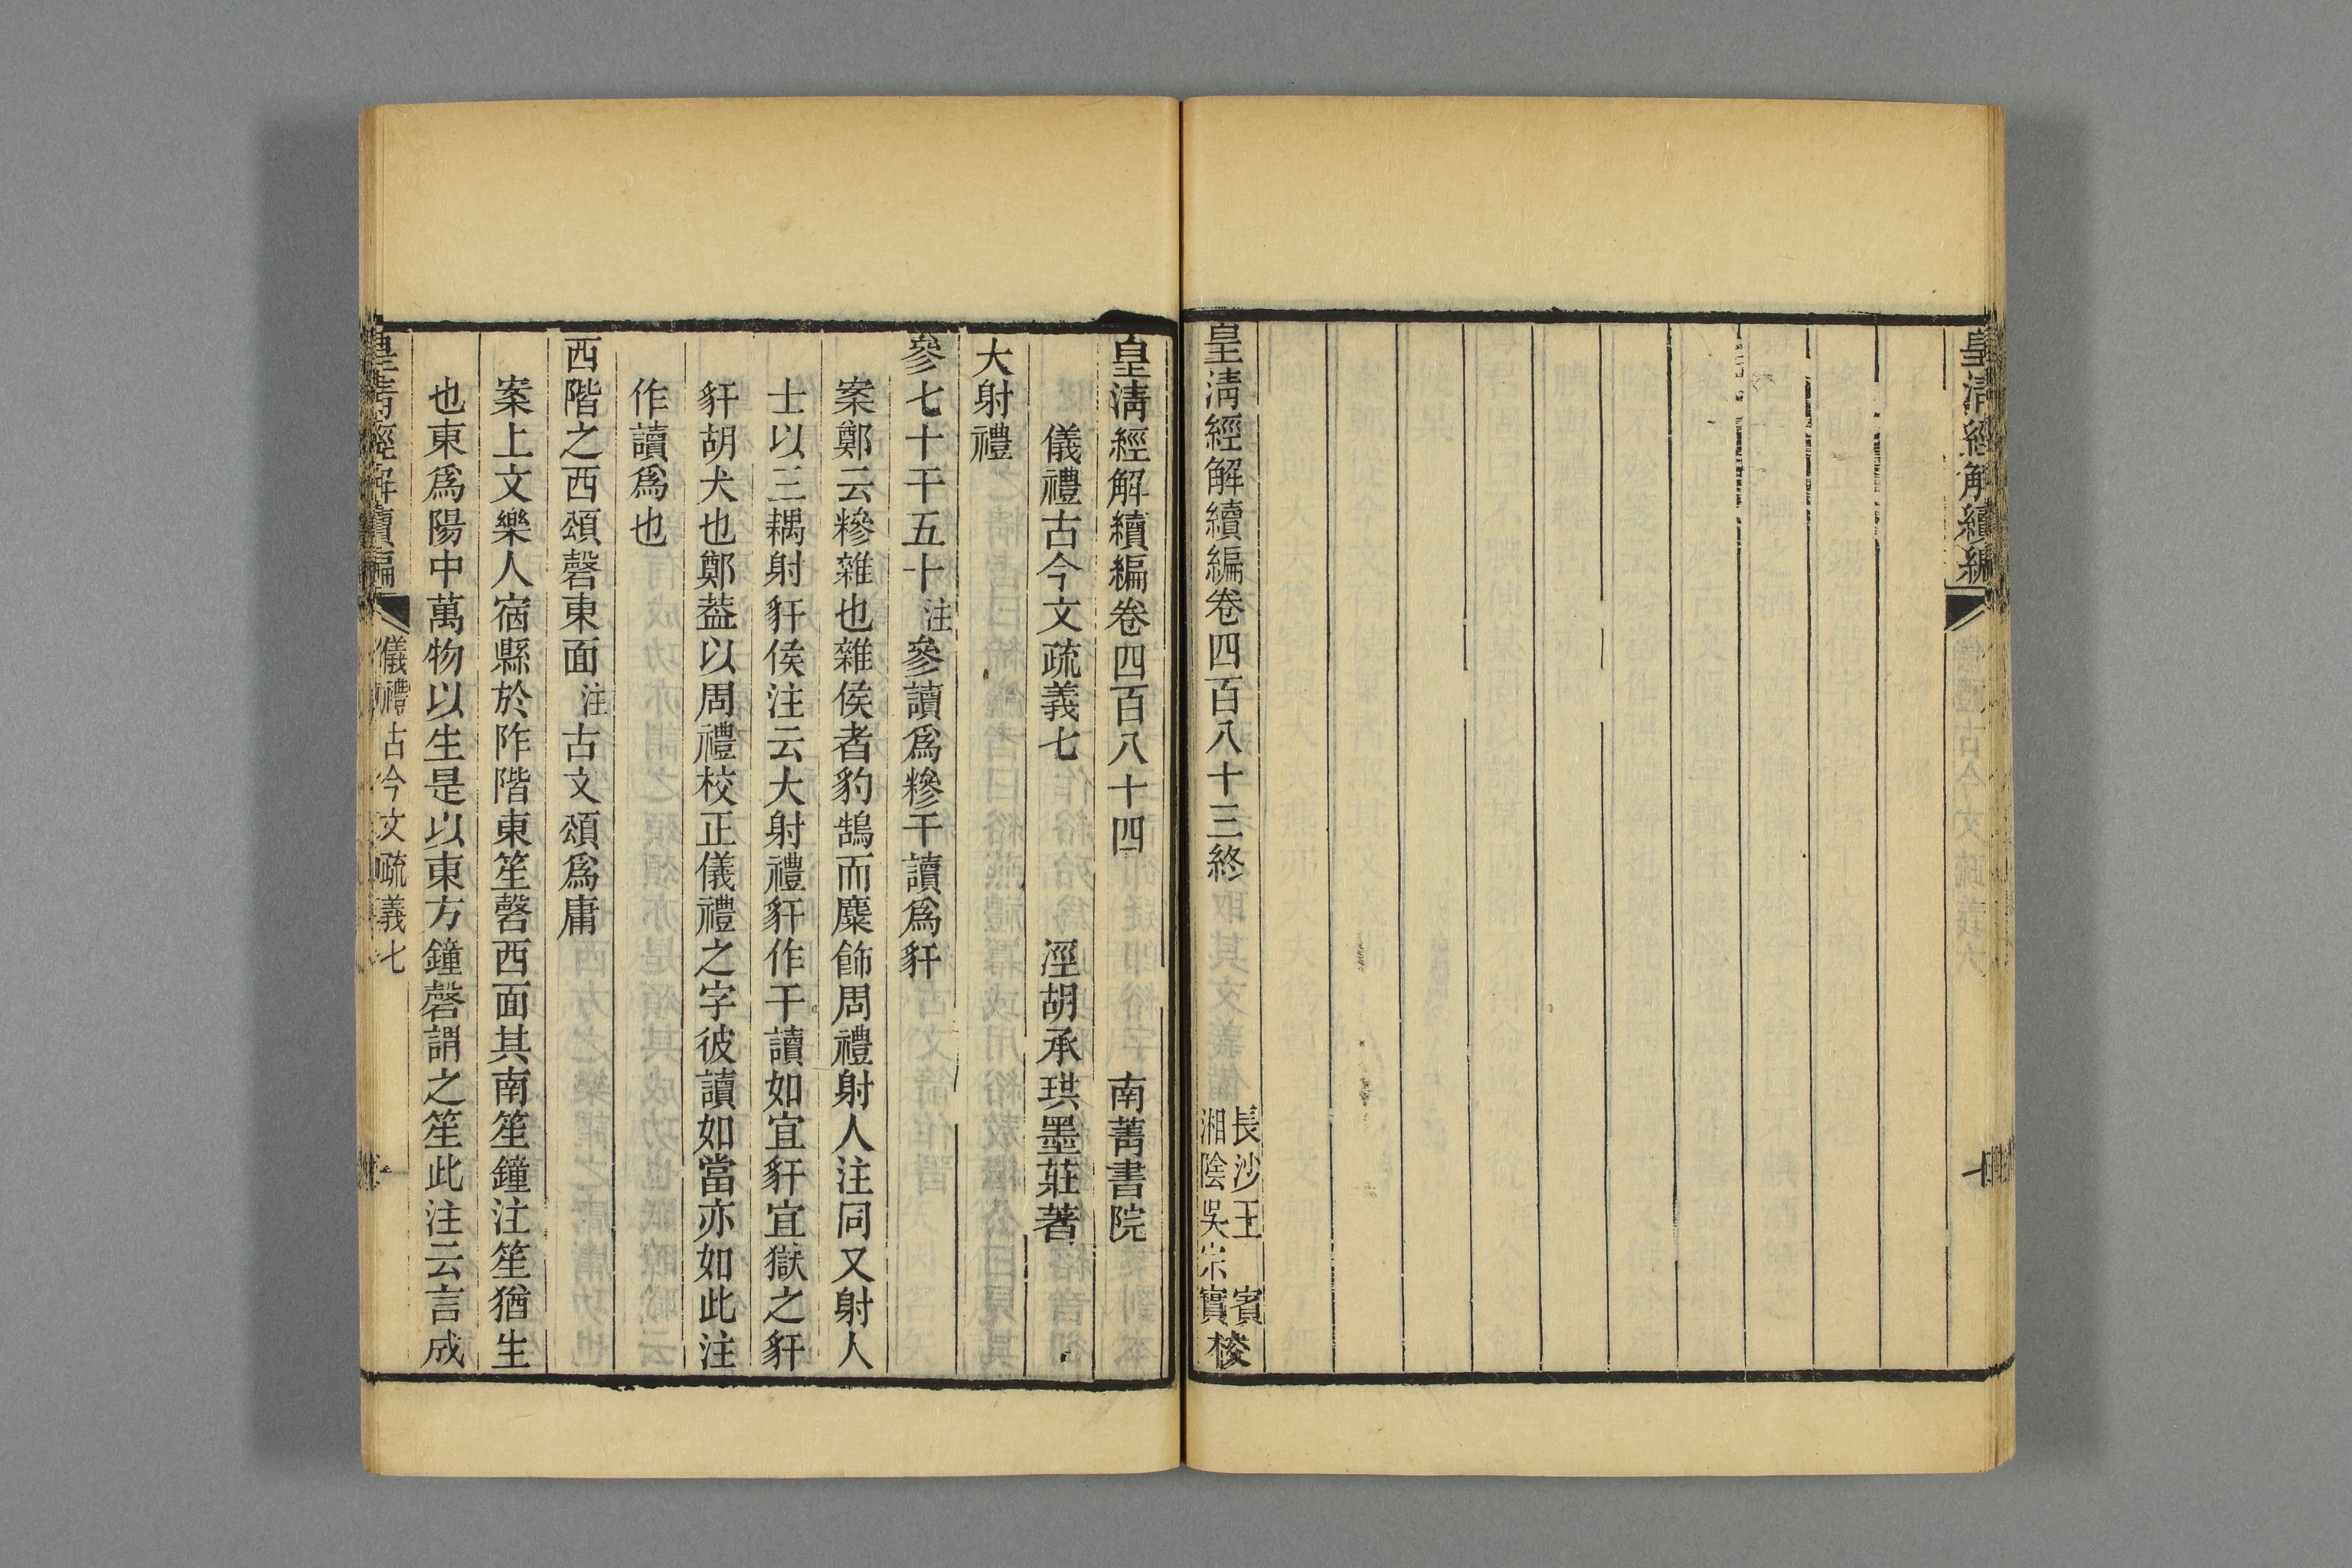 皇清經解續編
十
皇清經解續編卷四百八十三終
長沙王　賓
湘陰吳宗實
校
皇清經解續編卷四百八十四　南菁書院
儀禮古今文疏義七　涇胡承珙墨莊著
大射禮
參七十干五十注參讀爲糝干讀爲豻
案鄭云糝雜也雜侯者豹鵠而麋飾周禮射人注同又射人
士以三耦射豻侯注云大射禮豻作干讀如宜豻宜獄之豻
豻胡犬也鄭葢以周禮校正儀禮之字彼讀如當亦如此注
作讀爲也
西階之西頌磬東面注古文頌爲庸
案上文樂人宿縣於阼階東笙磬西面其南笙鐘注笙猶生
也東爲陽中萬物以生是以東方鐘磬謂之笙此注云言成
皇清經解續編
儀禮古今文疏義七